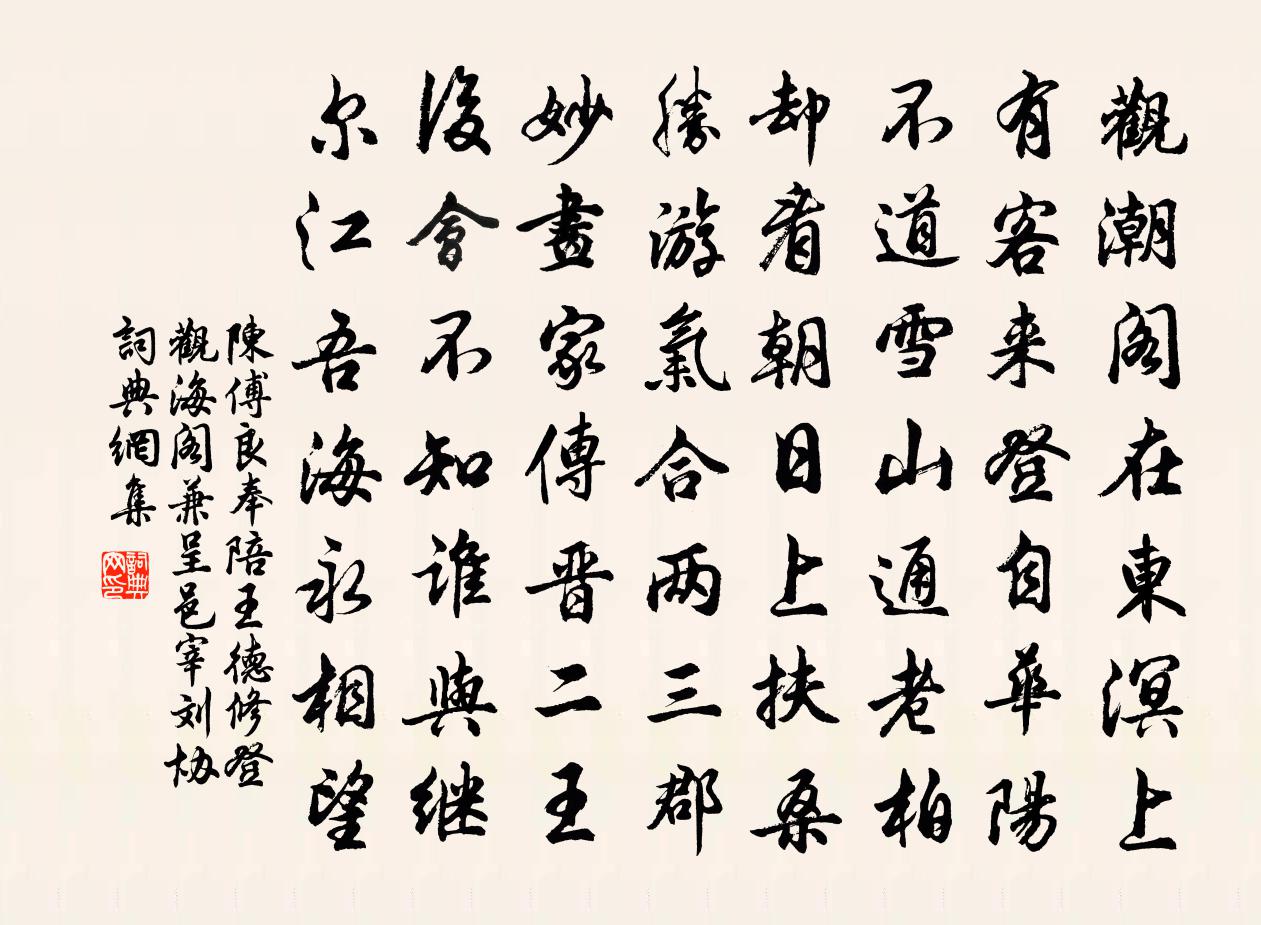 觀潮阁在東溟上
有客来登自華陽
不道雪山通老柏
却看朝日上扶桑
勝游氣合两三郡
妙畫家傳晋二王
後會不知誰與继
尔江吾海永相望
陳傅良奉陪王德修登
觀海阁兼呈邑宰刘协
詞典網集
詞典网印